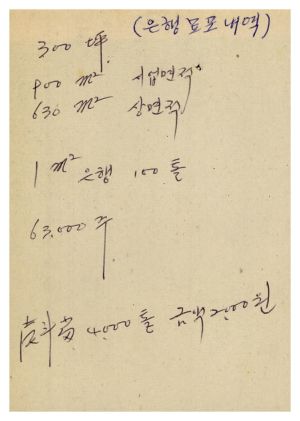 (은행 묘포 내역)
300 坪
900 m² 사업면적
630 m² 상면적
1 m² 은행 100 톨
63,000 주
4,000 톨 금액 2,000원